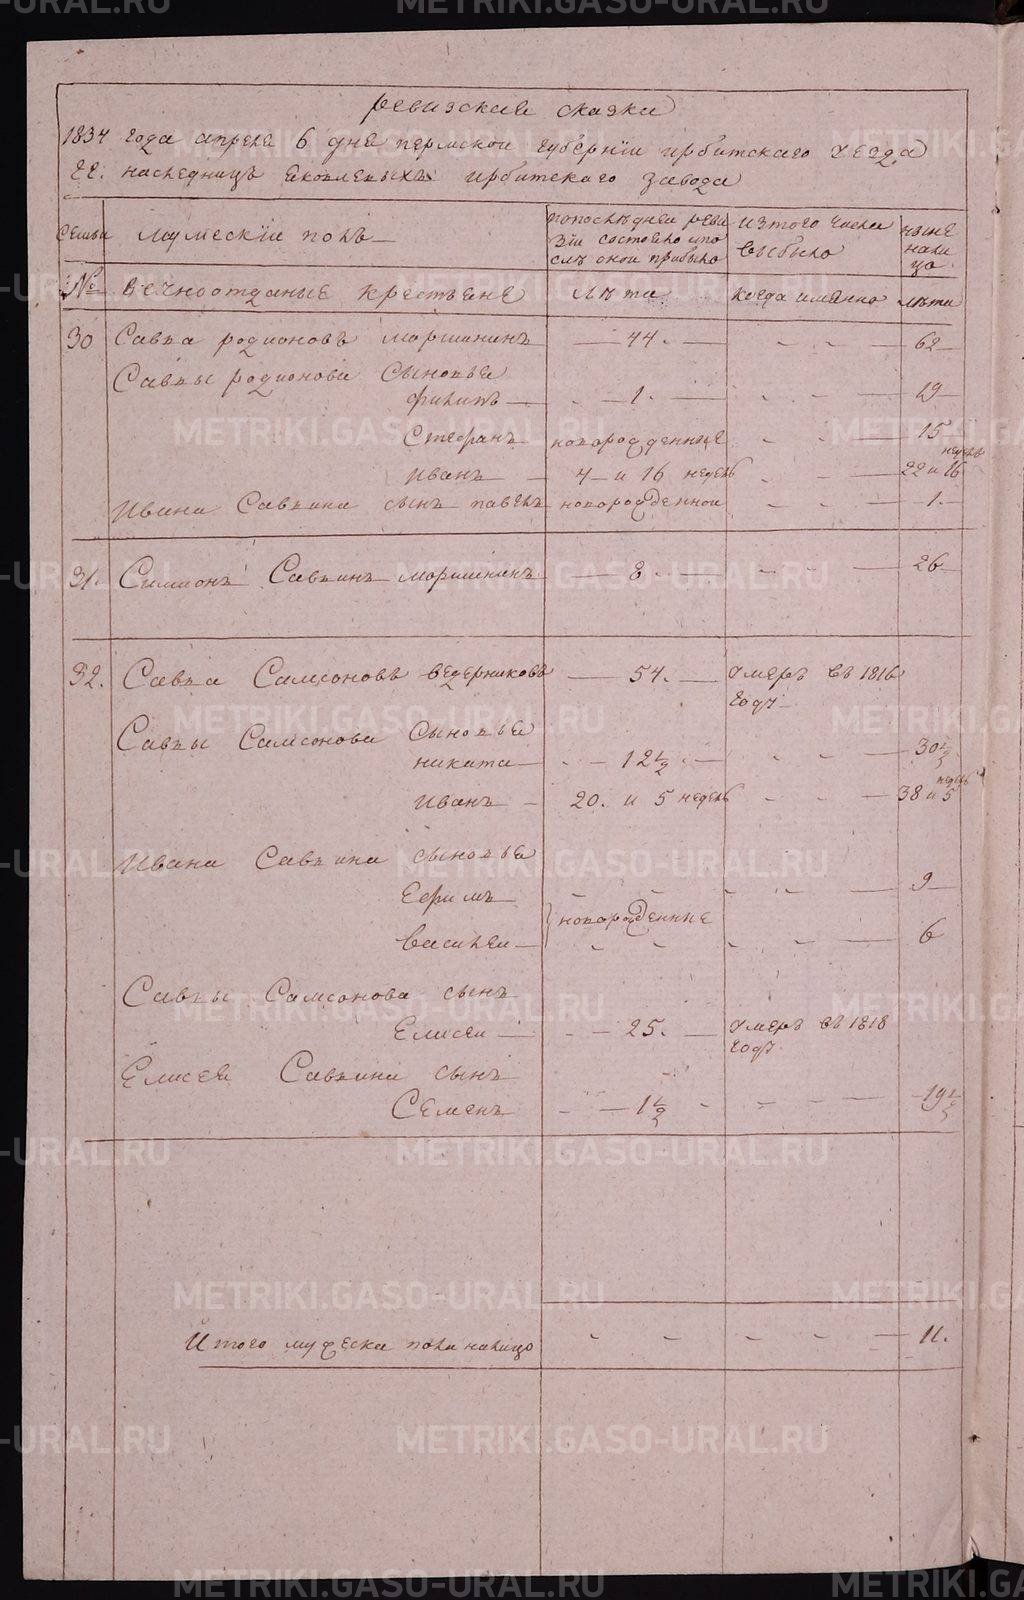 ревизская сказка
1834 года апреля 6 дня пермской губернии ирбитского уезда
гг: наследницъ яковлевыхъ ирбитского завода
семьи
мужескiй полъ
попоследней реви
зiи состояло и по
слѣ оной прибыло
изтого числа
выбыло
ныне
нали
цо
№
вечноотданые крестьяне
лѣта
когда имянно
лѣта
30 Савва родионовъ моршининъ — 44. — 62
Саввы родионова Сыновья
филипъ — 1. — 19
Стефанъ новорожденные — 15
Иванъ — 4 и 16 недель — 22 и 16 недель
Ивана Саввина сынъ павелъ новорожденной — 1.
31. Симионъ Саввинъ моршининъ — 8. — 26
32. Савва Самсоновъ ведерниковъ — 54. — умеръ въ 1816
году
Саввы Самсонова Сыновья
никита — 12 1/2 — 30 1/2
Иванъ — 20. и 5 недель — 38 и 5 недель
Ивана Саввина сыновья
Ефимъ — 9
новорожденные
василеи — 6
Саввы Самсонова сынъ
Елисеи — 25. — умеръ въ 1818
году
Елисея Саввина сынъ
Семенъ — 1 1/2 — 19 1/2
Итого мужеска пола налицо — 11.
METRIKI.GASO-URAL.RU